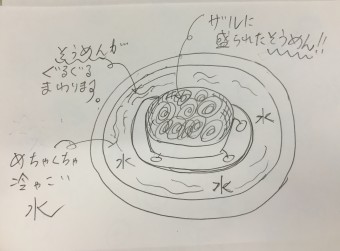 ザルに
盛られたそうめん!!
そうめんが
ぐるぐる
まわりまる。
めちゃくちゃ
冷やこい
水
水
水
水